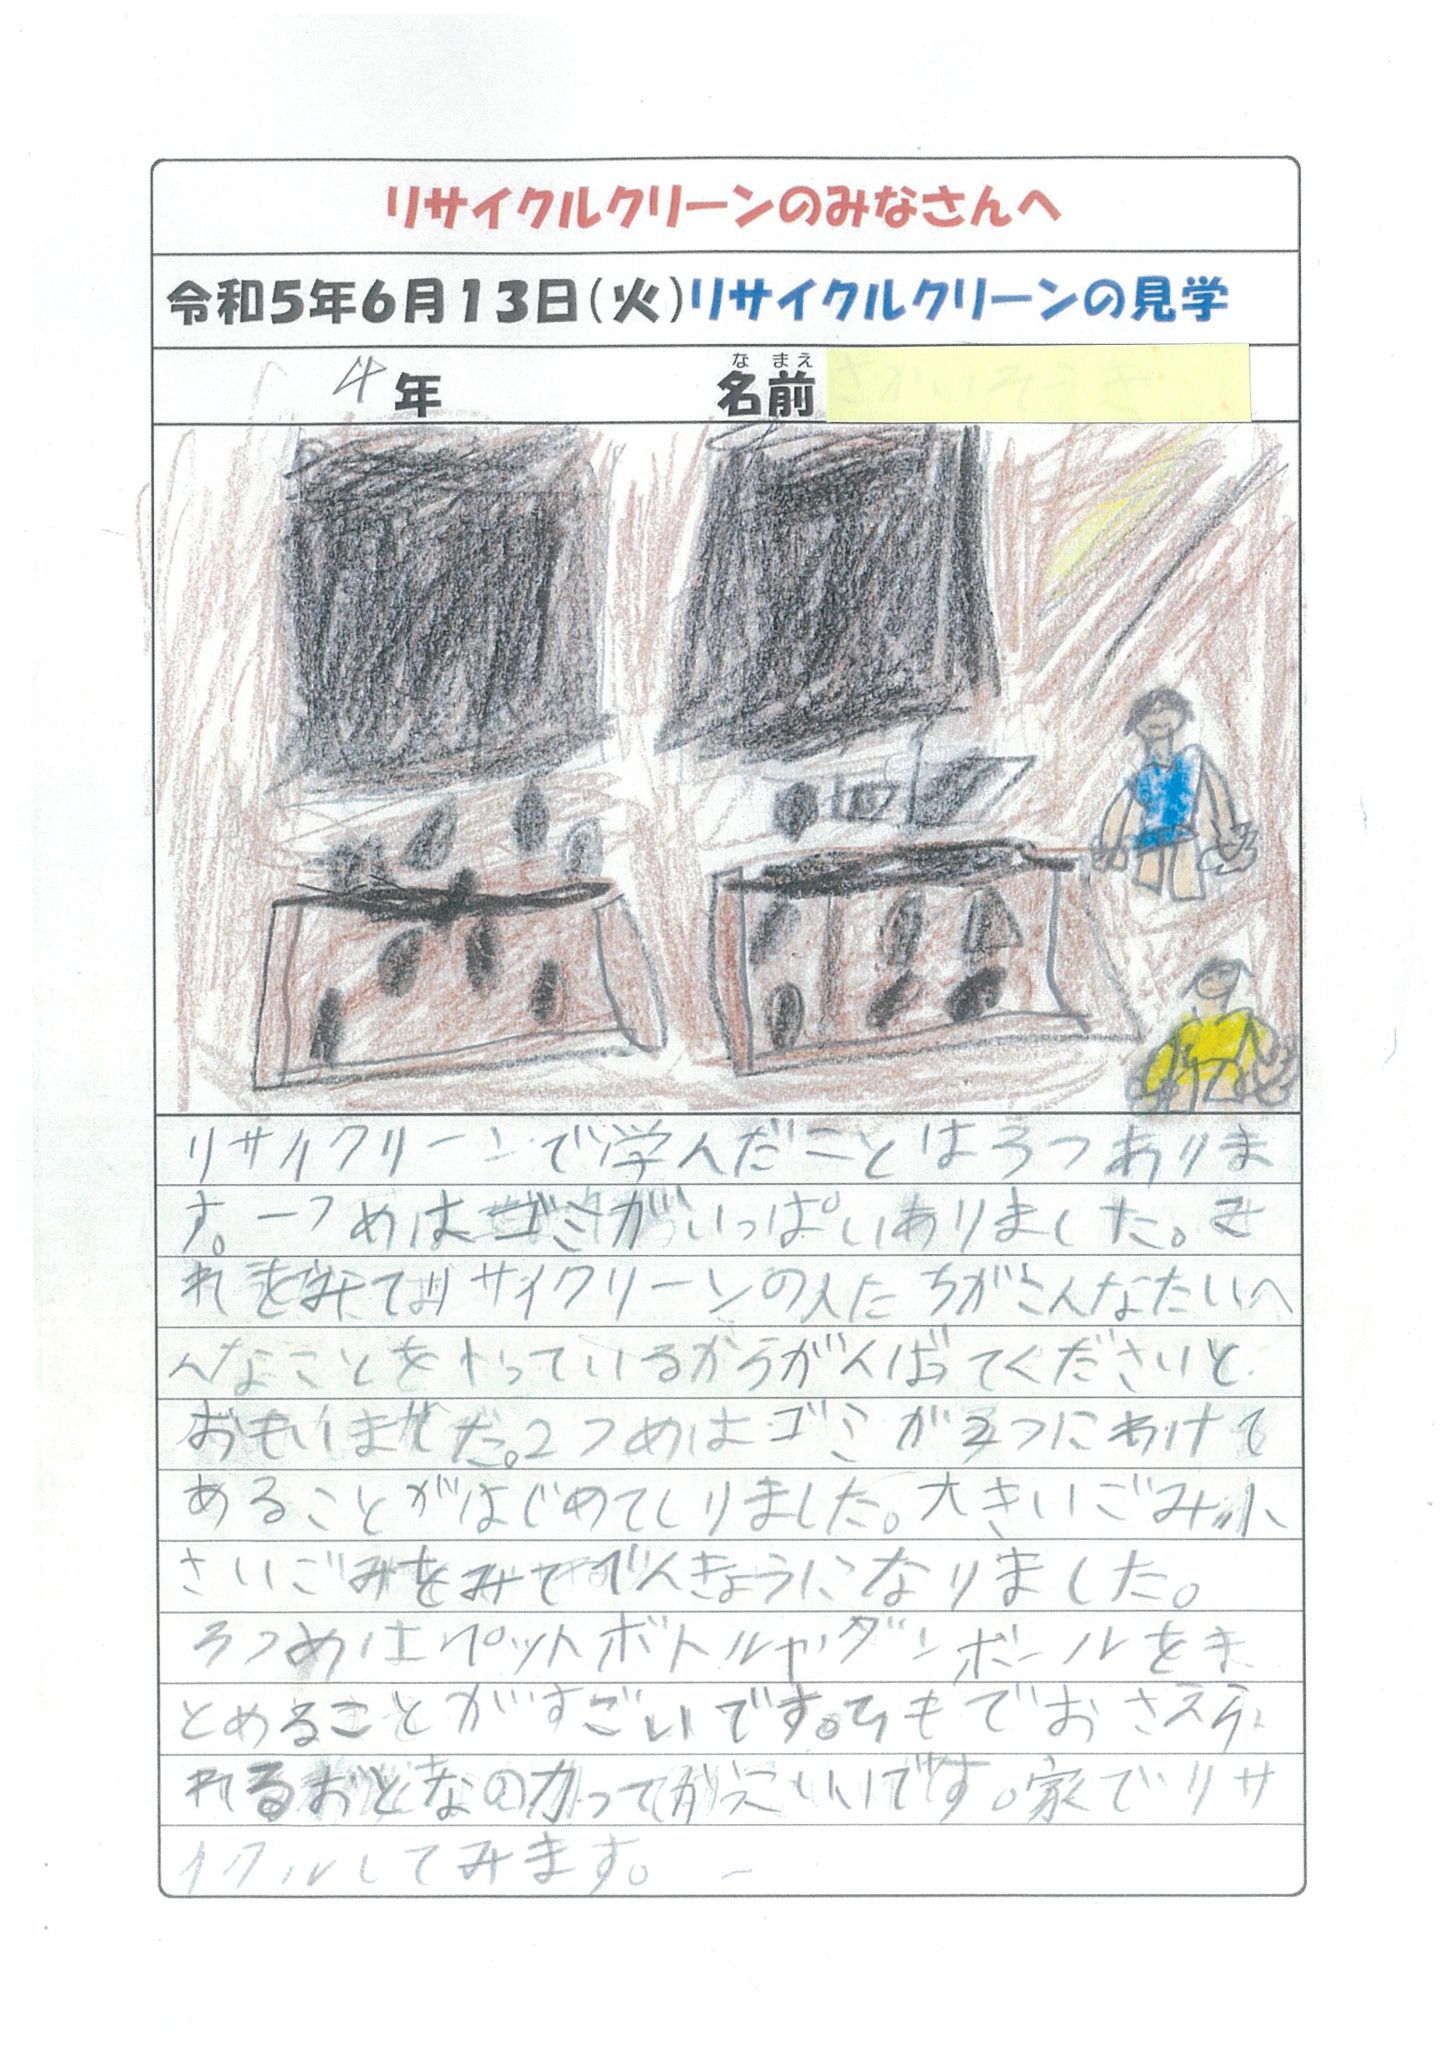 リサイクルクリーンのみなさんへ
令和5年6月13日(火)リサイクルクリーンの見学
4年 名前
な まえ
リサイクリーンで学んだことは3つありま
す。一つめはゴミがいっぱいありました。そ
れをみてリサイクリーンの人たちがこんなたいへ
んなことをやっているからがんばってくださいと
おもいました。2つめはゴミが3つにわけて
あることがはじめてしりました。大きいごみ小
さいごみをみてべんきょうになりました。
3つめはペットボトルやダンボールをま
とめることがすごいです。でもおさえら
れるおとなの力ってかっこいいです。家でリサ
イクルしてみます。